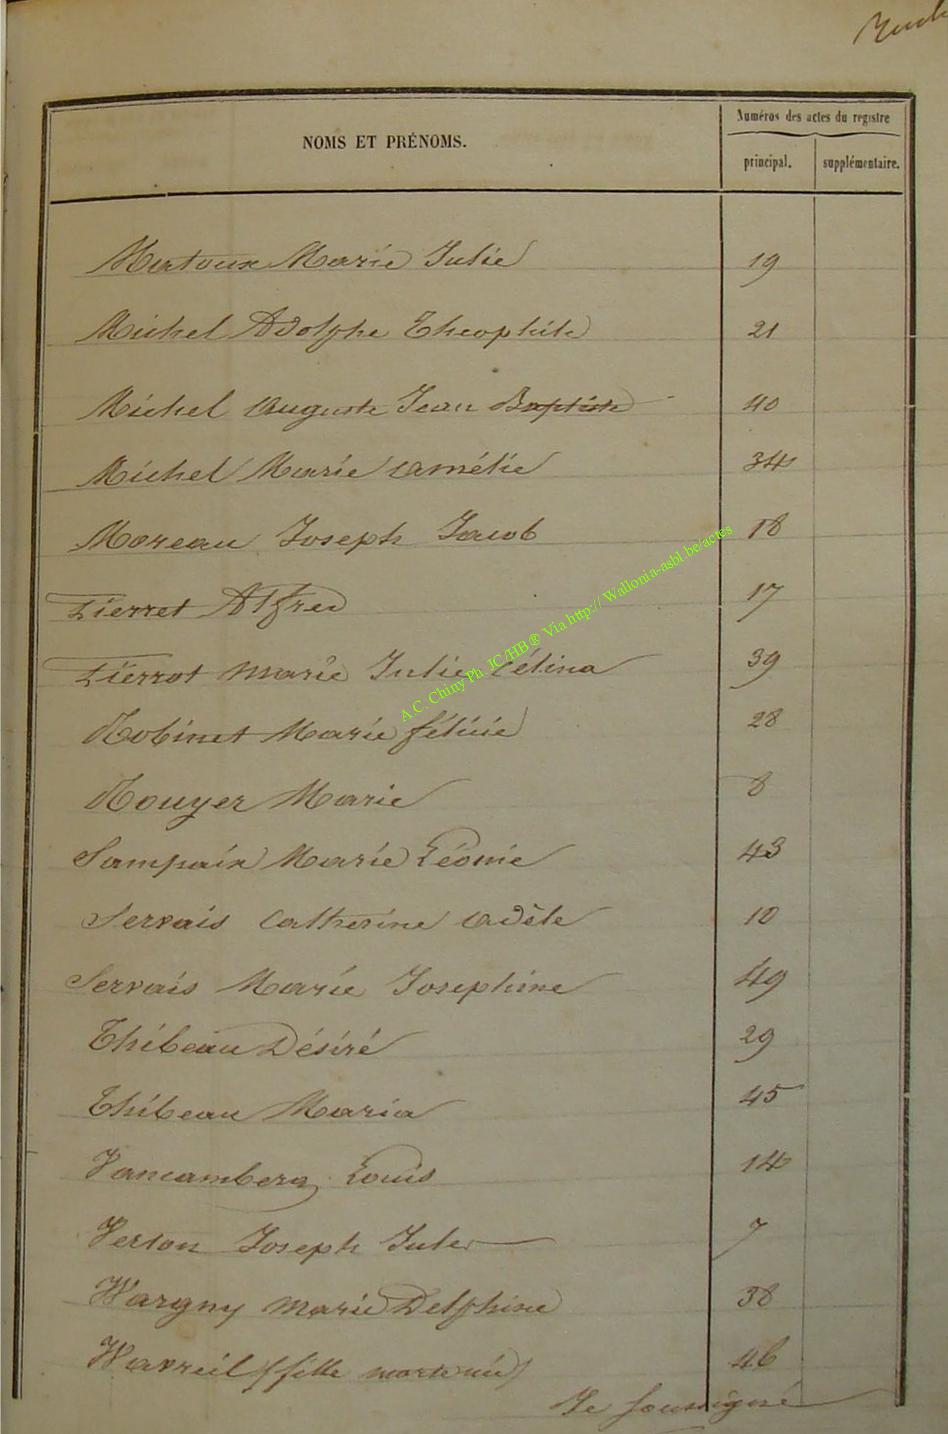 NOMS ET PRÉNOMS.
Numéros des actes du registre
principal.
supplémentaire.
Matoux Marie Julie 19
Michel Adolphe Theophile 21
Michel Auguste Jean Baptiste 40
Michel Marie Amélie 34
Moreau Joseph Jacob 18
Pierret Alfred 17
Pierrot Marie Julie Célina 39
Robinet Marie félicie 28
Rouyer Marie 8
Sampaix Marie Léonie 43
Servais Catherine Adèle 10
Servais Marie Josephine 49
Thibeau Désiré 29
Thibeau Maria 45
Vancamberg Louis 14
Verlon Joseph Jules 7
Wargny Marie Delphine 38
Wavreil (fille morte née) 46
Je soussigné
A.C. Chiny Ph. JC/HB® Via http:// Wallonia-asbl.be/actes